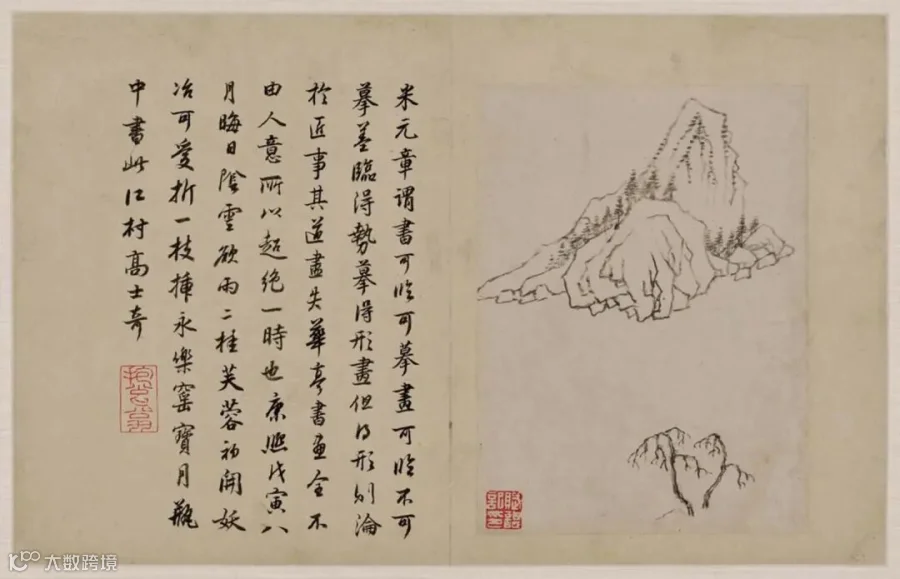 米元章謂書可臨可摹畫可臨不可
摹蓋臨得勢摹得形畫但得形則淪
於匠事其道盡失華亭書畫全不
由人意所以超絕一時也康熙戊寅八
月晦日陰雲欲雨二桂芙蓉初開妖
冶可愛折一枝揷永樂窰寶月瓶
中書此江村高士奇
大数跨境